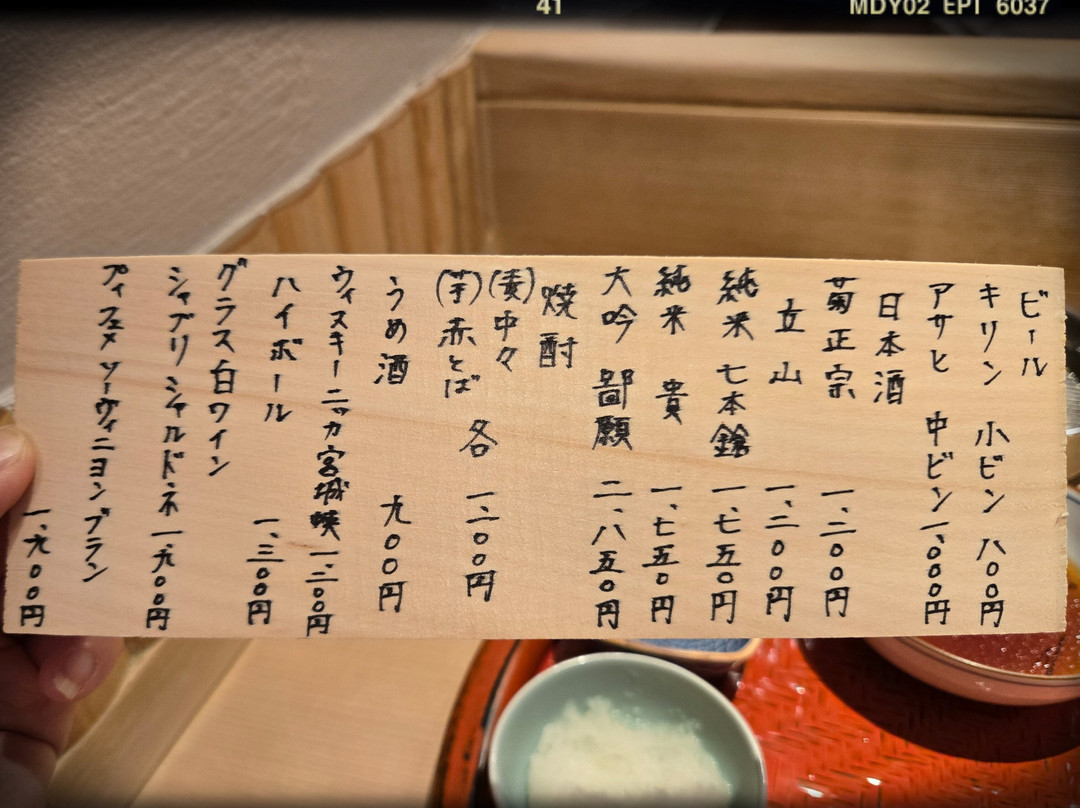 41
MDY02 EPT 6037
ビール
キリン 小ビン 八〇〇円
アサヒ 中ビン 一、〇〇〇円
日本酒
菊正宗 一、二〇〇円
立山 一、二〇〇円
純米 七本鎗 一、七五〇円
純米 貴 一、七五〇円
大吟 鄙願 二、八五〇円
焼酎
(麦)中々
(芋)赤とば 各 一、二〇〇円
うめ酒 九〇〇円
ウィスキーニッカ宮城峡 一、二〇〇円
ハイボール 一、三〇〇円
グラス白ワイン
シャブリ シャルドネ 一、九〇〇円
プィフュメ ソーヴィニヨン ブラン
一、九〇〇円